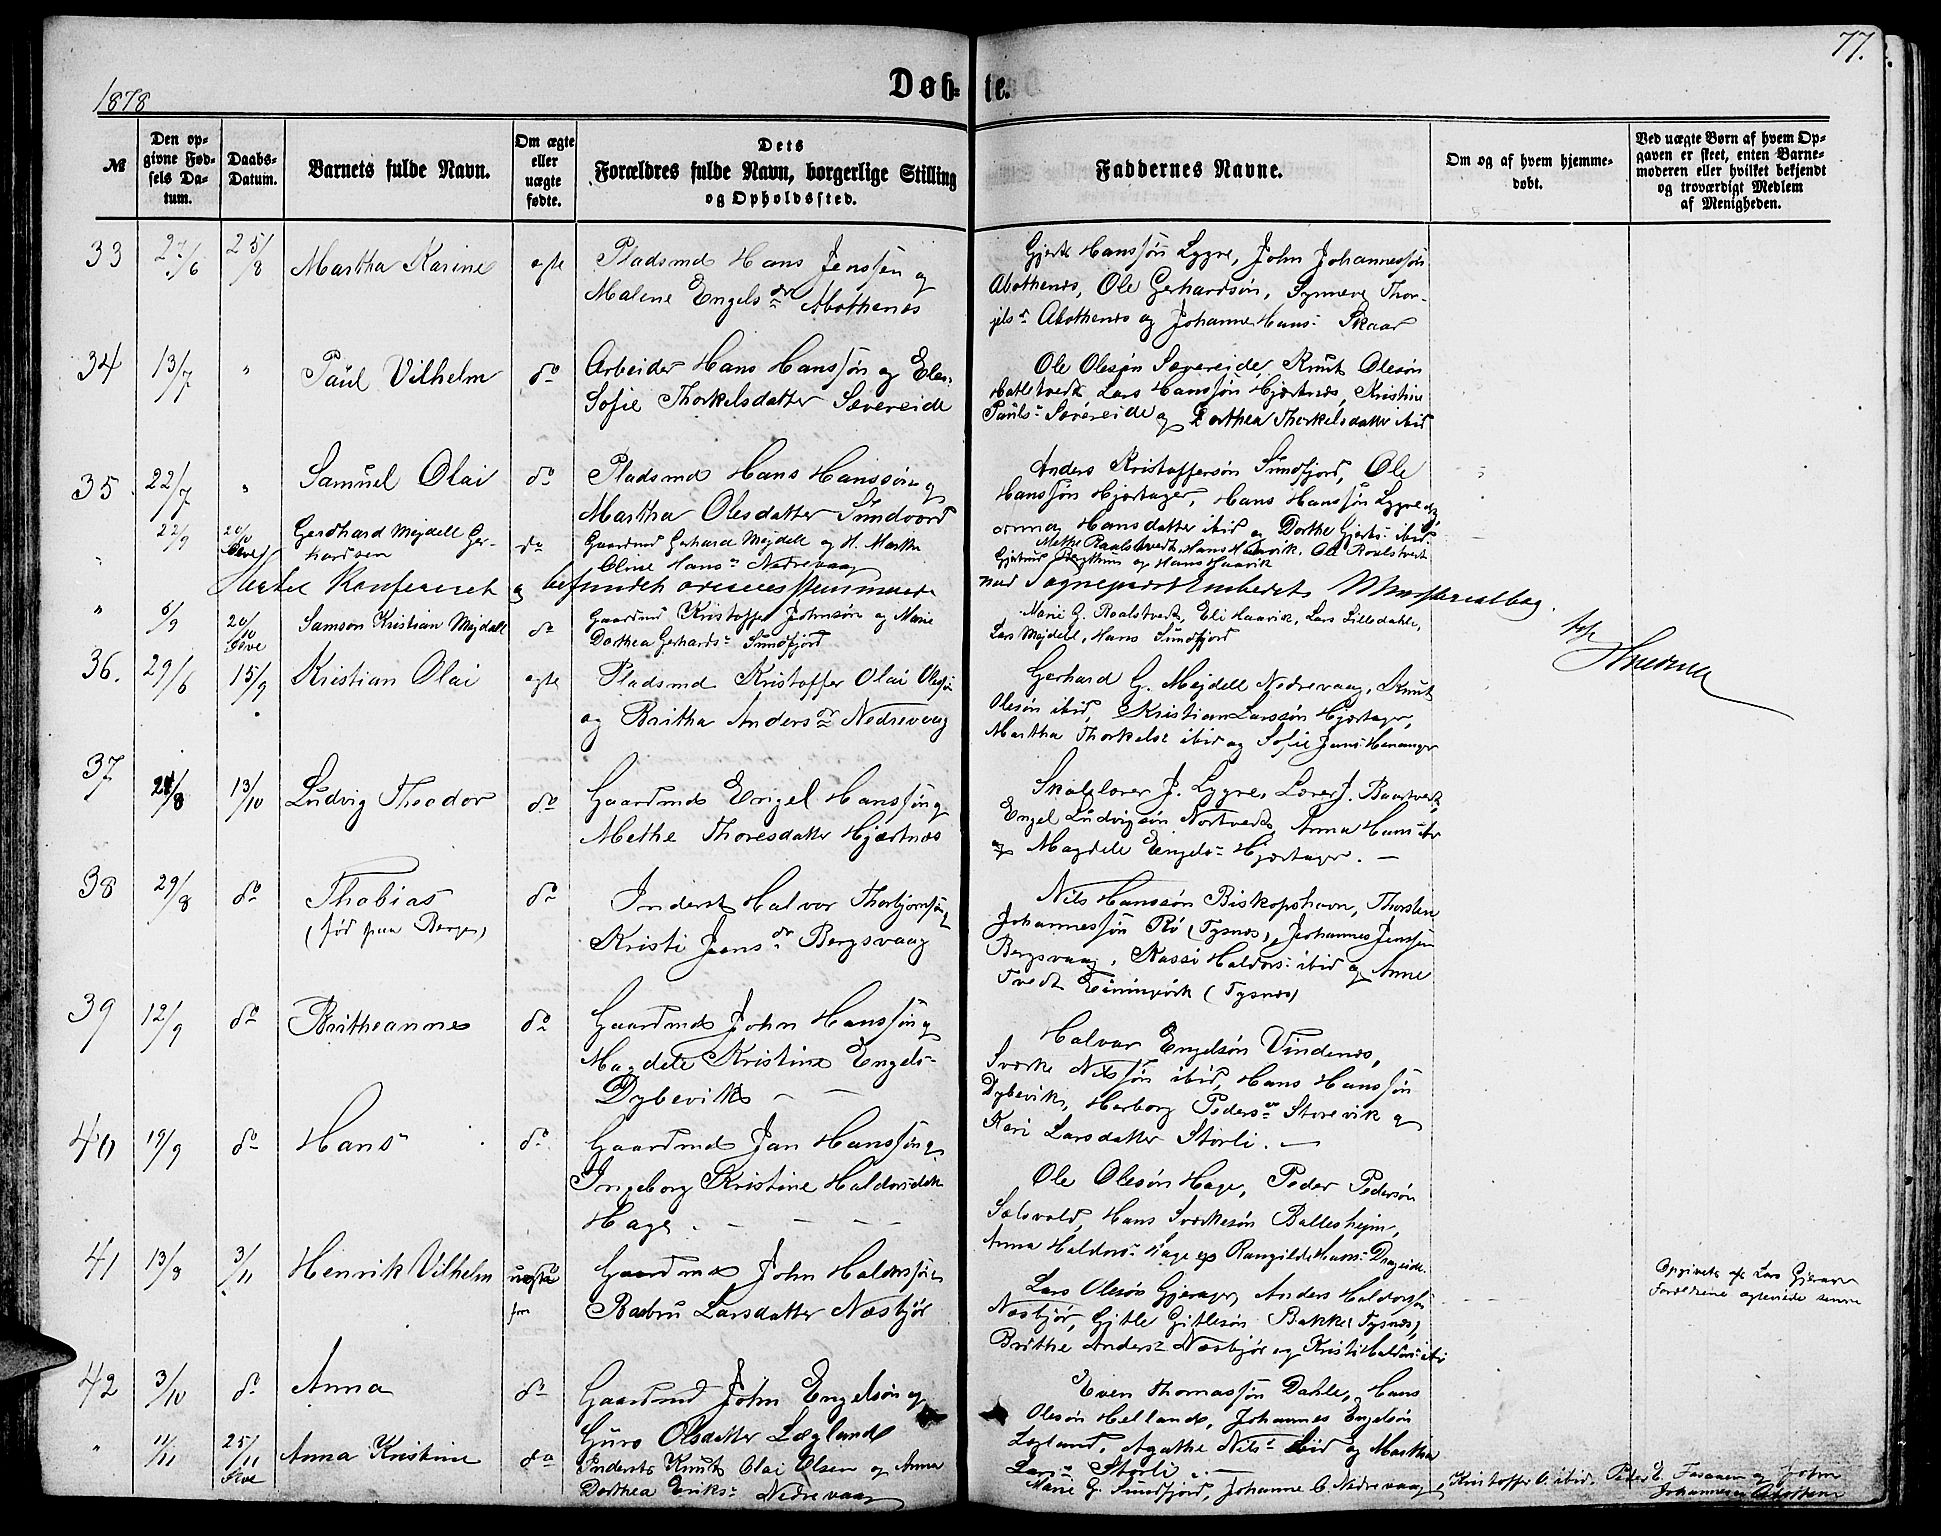 77.
1878
Døb- te.
№
Den op-
givne Fød-
sels Da-
tum.
Daabs-
Datum.
Barnets fulde Navn.
Om ægte
eller
uægte
fødte.
Dets
Forældres fulde Navn, borgerlige Stilling
og Opholdssted.
Faddernes Navne.
Om og af hvem hjemme-
døbt.
Ved uægte Børn af hvem Op-
gaven er skeet, enten Barne-
moderen eller hvilket bekjendt
og troværdigt Medlem
af Menigheden.
33 27/6 25/8 Martha Karine ægte
Pladsmd Hans Jenssøn og
Malene Engelsdr Abothenæs
Gjert Hanssøn Lygre, John Johannessøn
Abothenæs, Ole Gerhardsøn, Synneve Thor-
jels Abothenæs og Johanne Hans- Skaar
34 13/7 " Paul Vilhelm do
Arbeider Hans Hanssøn og Elen
Sofie Thorkelsdatter Sævereide
Ole Olesøn Sævereide, Knut Olesøn
Hatletvedt, Lars Hanssøn Hjortnæs, Kristine
Pauls- Sævereide og Dorthea Thorkelsdatter ibid
35 22/7 " Samuel Olai do
Pladsmd Hans Hanssøn og
Martha Olesdatter Sundvord
Anders Kristoffersøn Sundfjord, Ole
Hanssøn Hjortager, Hans Hanssøn Lygre og
Anna Hansdatter ibid og Dorthe Gjerts- ibid
" 22/9 20/10 Gerdhard Mejdell Ger-
hardsen do
Gaardmd Gerhard Mejdell og H. Martha
Oline Hans- Nedrevaag
Methe Raalstvedt, Hans Haavik, Ole Raalstvedt
Gjertrud og Hans Haavik
Konfereret og befundet overensstemmende
med Sogneprest Embedets Ministerialbog.
" 5/9 20/10 Samson Kristian Mejdell do
Gaardmd Kristoffer Johnsøn og Marie
Dorthea Gerhards- Sundfjord
Marie G. Raalstvedt, Eli Haavik, Lars Lilledahle,
Lars Mejdell, Hans Sundfjord
36. 29/6 15/9 Kristian Olai ægte
Pladsmd Kristoffer Olai Olesøn
og Britha Andersdr Nedrevaag
Gerhard G. Mejdell Nedrevaag, Knut
Olesøn ibid, Kristian Larssøn Hjortager,
Martha Thorkels- ibid og Sofie Jans- Henanger
37 24/8 13/10 Ludvig Theodor do
Gaardmd Engel Hanssøn og
Methe Thoresdatter Hjortnæs
Skolelærer J. Lygre, Lærer J. Baartvedt
Engel Ludvigsøn Nortvedt, Anna Hans ibr
og Magdele Engels- Hjortager. —
38 29/8 do Thobias
(fød paa Bergen) do
Inderst Halvor Thorbjørnsøn
Kristi Jensdr Bergsvaag
Nils Hanssøn Biskopshavn, Thorsten
Johannessøn Rø (Tysnæs), Johannes Jenssøn
Bergsvaag, Kassi Haldors- ibid og Anne
Tvedt (Tysnæs)
39 12/9 do Britheanne do
Gaardmd John Hanssøn og
Magdele Kristine Engels-
Dybevik —
Halvor Engelsøn Vindenæs,
Sværke Nilssøn ibid, Hans Hanssøn
Dybevik, Herborg Pedersdr Storevik og
Kari Larsdatter Storli. —
40 19/9 do Hans do
Gaardmd Jan Hanssøn og
Ingeborg Kristine Haldorsdatter
Hage. — — —
Ole Olesøn Hage, Peder Pedersøn
Sælsvold, Hans Sværkesøn Ballesheim,
Anna Haldors- Hage og Rangilde Hans- Drageide.
41 13/8 3/11 Henrik Vilhelm uægte
Gaardmd John Haldorssøn
Barbru Larsdatter Næsbjør
Lars Olesøn Gjerager, Anders Haldorssøn
Næsbjør, Gitle Gitlesøn Bakke (Tysnæs),
Brithe Anders- Næsbjør og Kristi Haldors- ibr
Opgivet af Lars Gjerager
Forældrene ægteviede senere
42 3/10 do Anna do
Gaardmd John Engelsøn og
Guro Olsdatter Lægland
Even Thomassøn Dahle, Hans
Olesøn Helland, Johannes Engelsøn
Lægland, Agathe Nils- ibid og Martha
Lars- Storli. —
" 11/11 25/11 Anna Kristine do
Inderst Knut Olai Olsen og Anna
Dorthea Eriks- Nedrevaag
Marie G. Sundfjord, Johanne C. Nedrevaag, Kristoffer O. ibid. Peder E. Fasanen og John
Johannesen Abothenæs